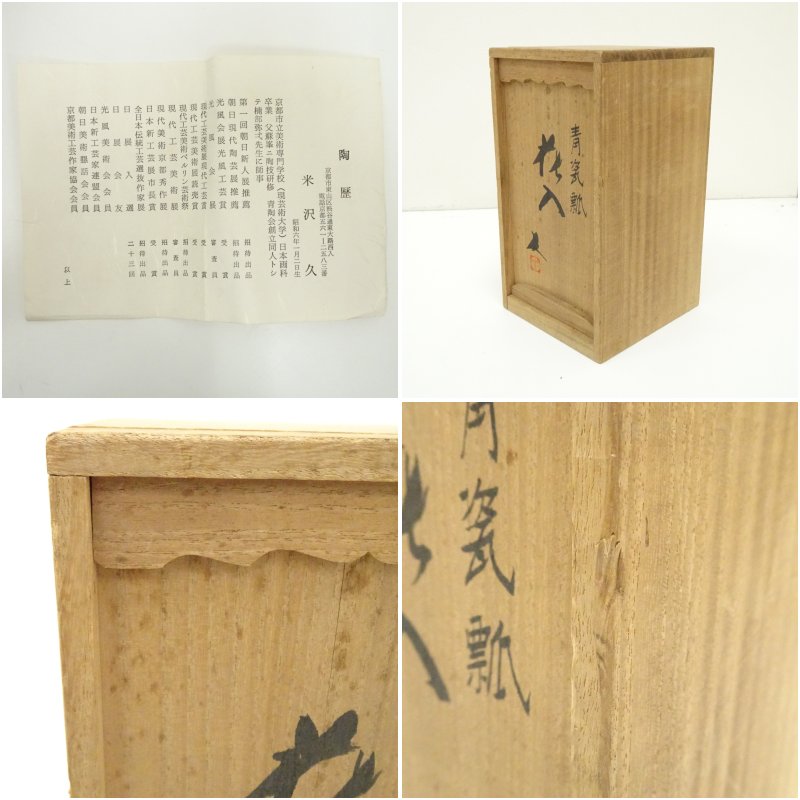 陶歴
京都市東山区渋谷通東大路西入
電話京都五六一ー二五八三番
米沢久
昭和六年一月二日生
京都市立美術専門学校(現芸術大学)日本画科
卒業 父蘇峯ニ陶技研修 青陶会創立同人トシ
テ楠部弥弌先生に師事
第一回朝日新人展推薦 招待出品
朝日現代陶芸展推薦 招待出品
光風会展光風工芸賞 受賞
光風会展 審査員
現代工芸美術展現代工芸賞 受賞
現代工芸美術展読売賞 受賞
現代工芸美術ベルリン芸術祭 招待出品
現代工芸美術展 審査員
現代美術京都秀作展 招待出品
日本新工芸展市長賞 受賞
全日本伝統工芸選抜作家展 招待出品
日展入選 二十三回
日展会友
光風美術会会員
日本新工芸家連盟会員
朝日美術懇話会会員
京都美術工芸作家協会会員
以上
青瓷瓢
花入
久
青瓷瓢
花入
花